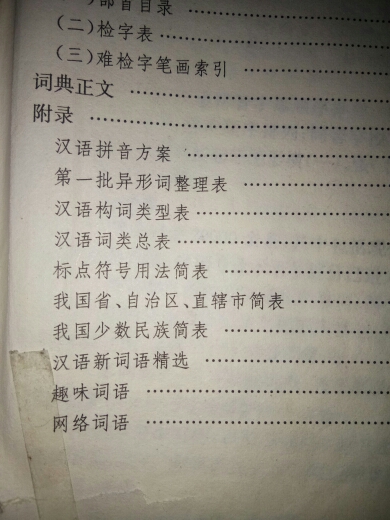 )部首目录 ………………
(二)检字表 ………………
(三)难检字笔画索引 ………………
词典正文 ………………
附录 ………………
汉语拼音方案 ………………
第一批异形词整理表 ………………
汉语构词类型表 ………………
汉语词类总表 ………………
标点符号用法简表 ………………
我国省、自治区、直辖市简表 ………………
我国少数民族简表 ………………
汉语新词语精选 ………………
趣味词语 ………………
网络词语 ………………